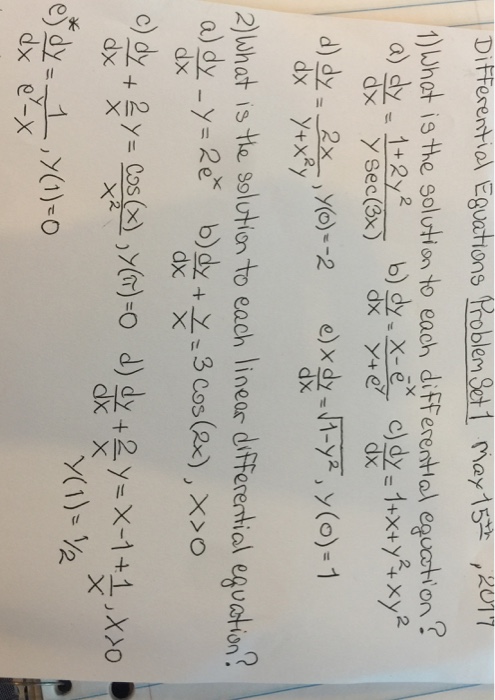 Differential Equations Problem Set 1 May 15th, 2017
1) What is the solution to each differential equation?
a) dy/dx = (1+2y²)/(y sec(3x)) b) dy/dx = (x-e⁻ˣ)/(y+eʸ) c) dy/dx = 1+x+y²+xy²
d) dy/dx = 2x/(y+x²y), y(0)=-2 e) x dy/dx = √(1-y²), y(0)=1
2) What is the solution to each linear differential equation?
a) dy/dx - y = 2eˣ b) dy/dx + y/x = 3 cos(2x), x>0
c) dy/dx + 2/x y = cos(x)/x², y(π)=0 d) dy/dx + 2/x y = x-1+1/x, x>0
y(1) = 1/2
e)* dy/dx = 1/(eʸ-x), y(1)=0